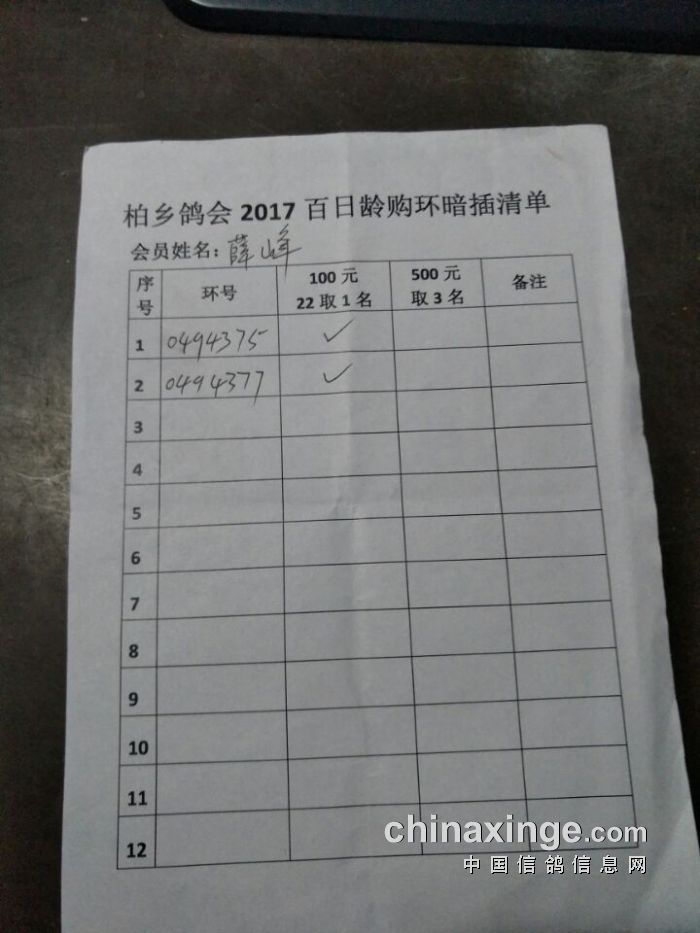 柏乡鸽会 2017 百日龄购环暗插清单
会员姓名：薛峰
序号 环号 100 元 22 取 1 名 500 元 取 3 名 备注
1 0494375 ✓
2 0494377 ✓
3
4
5
6
7
8
9
10
11
12
chinaxinge.com
中国信鸽信息网